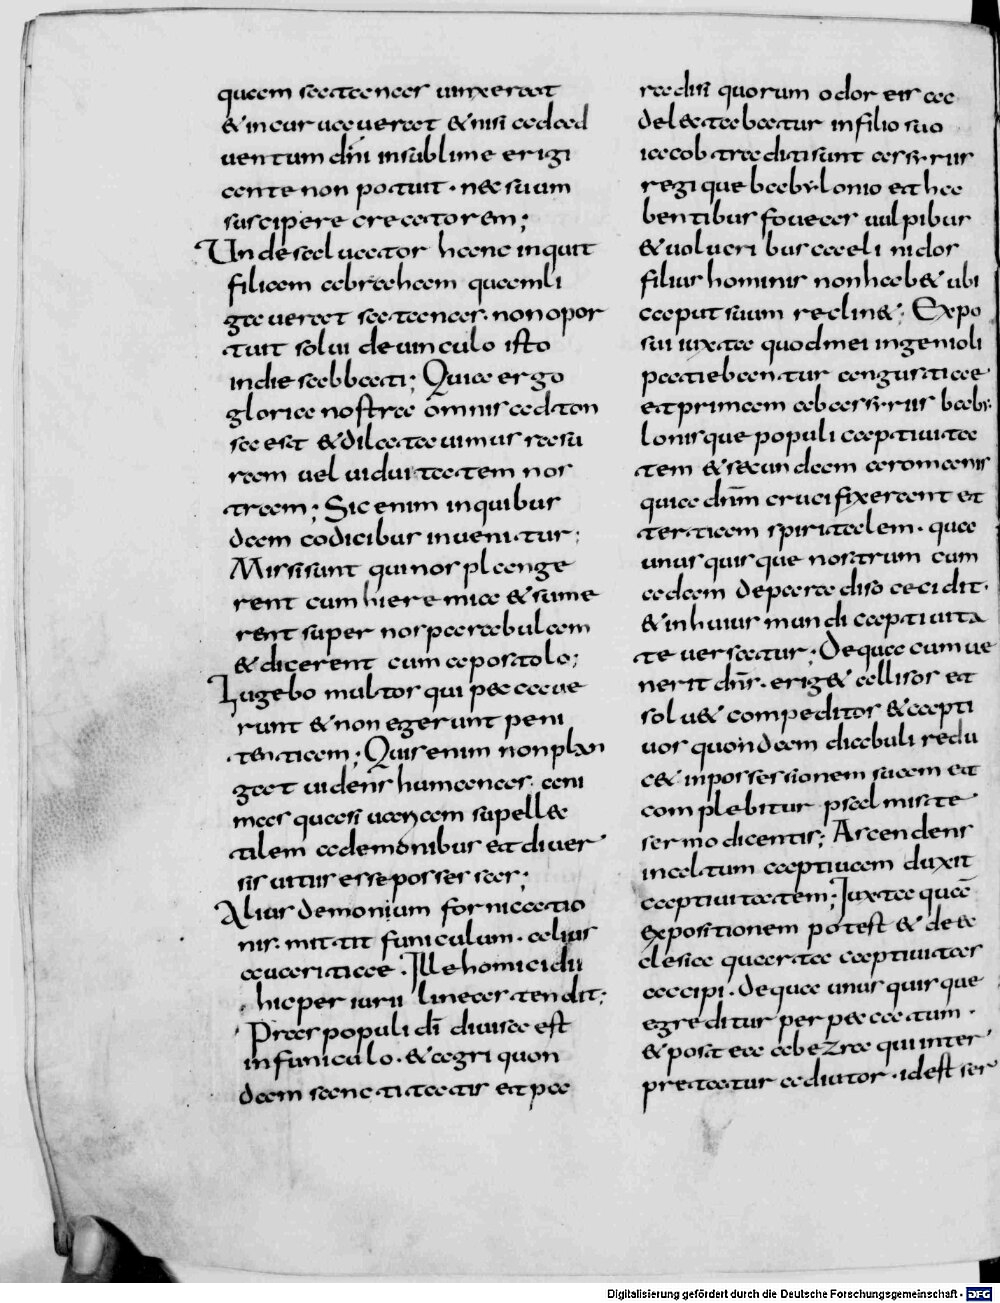 quam satanas uinxerat
& incuruauerat & nisi ad ad
uentum dñi in sublime erigi
ante non potuit · nec suum
suscipere creatorem;
Unde saluator hanc inquit
filiam abraham quam li
gauerat satanas · non opor
tuit solui de uinculo isto
in die sabbati; Quia ergo
gloria nostra omnis ad ton
sa est & dilatauimus rasu
ram uel uiduitatem nos
tram; Sic enim in quibus
dam codicibus inuenitur;
Missi sunt qui nos plange
rent cum hieremia & sume
rent super nos parabulam
& dicerent cum apostolo;
Lugebo multos qui peccaue
runt & non egerunt peni
tentiam; Quis enim non plan
gat uidens humanas · ani
mas quasi uanam supell&
tilem a demonibus et diuer
sis uitiis esse possessas;
Alius demonium fornicatio
nis · mittit funiculum · alius
auaritiae · Ille homicidii
hic periurii lineas tendit;
Pars populi dī diuisa est
in funiculo · & agri quon
dam sanctitatis et pa
radisi quorum odor eis ac
del&tabatur in filio suo
iacob traditi sunt assyriis
regique babylonio et ha
bentibus foueas uulpibus
& uolucribus caeli nidos
filius hominis non hab& ubi
caput suum reclin&; Expo
sui iuxta quod mei ingenioli
patiebantur angustiae
et primam ab assyriis baby
lonisque populi captiuita
tem & secundam a romanis
quia dñm crucifixerant et
tertiam spiritalem · qua
unus quisque nostrum cum
adam de paradiso cecidit ·
& in huius mundi captiuita
te uersatur; De qua cum ue
nerit dñs · erig& allisos et
solu& compeditos & capti
uos quondam diabuli redu
c& in possessionem suam et
complebitur psalmista
sermo dicentis; Ascendens
in altum captiuam duxit
captiuitatem; Iuxta quā
expositionem potest & de ec
clesia quarta captiuitas
accipi · De qua unus quisque
egreditur per peccatum ·
& postea ab ezra qui inter
pretatur adiutor · id est ser